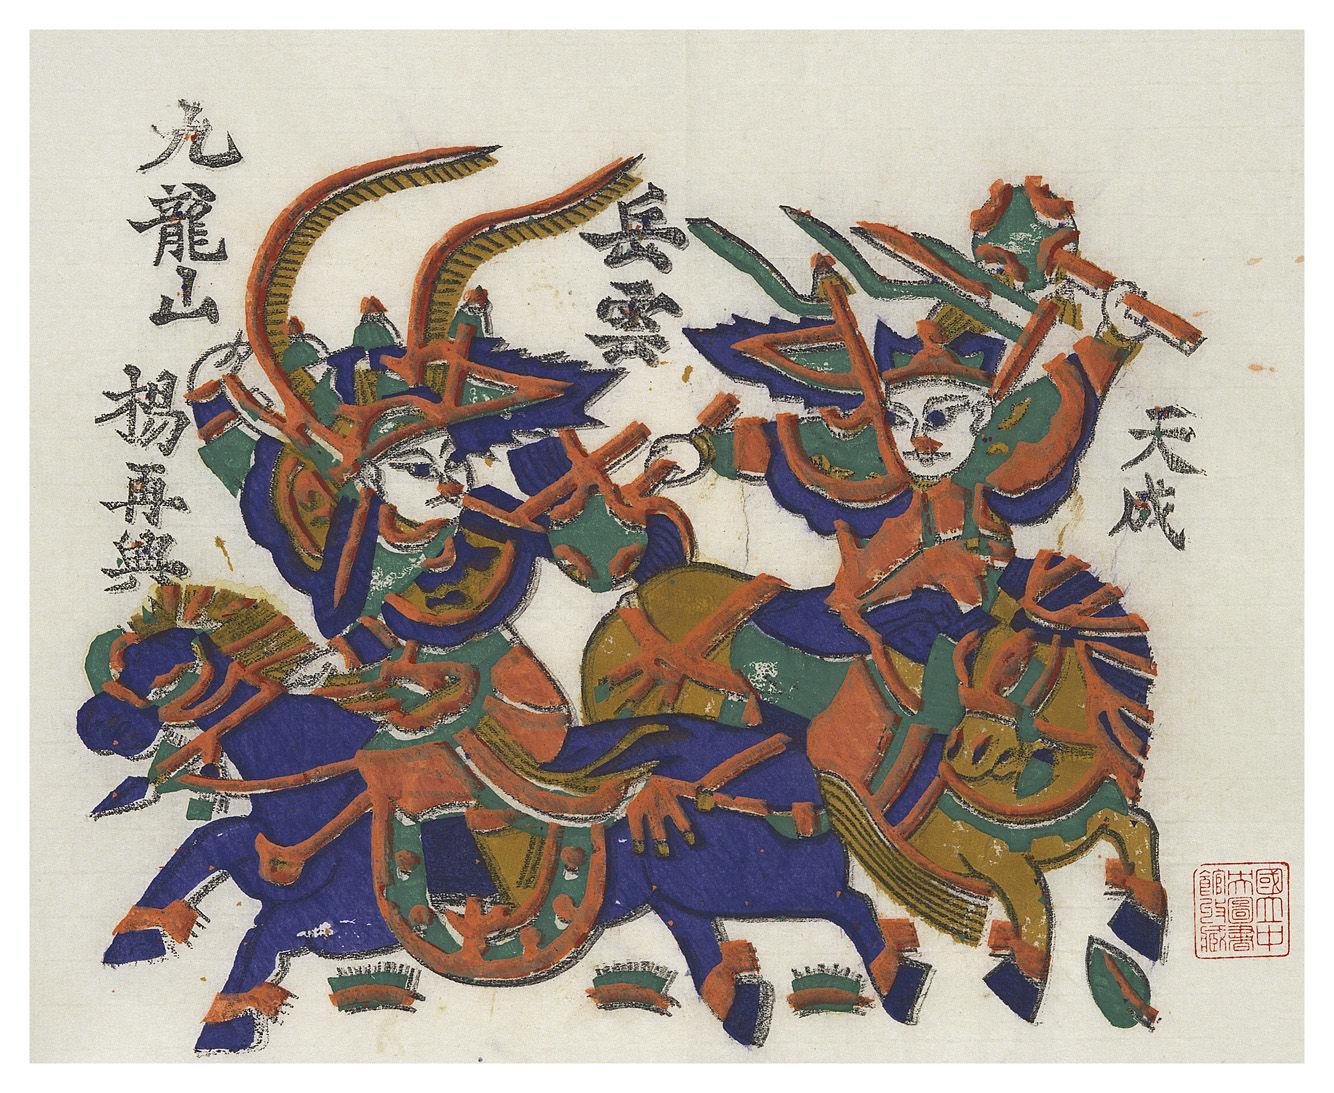 九龍山
楊再興
岳雲
天成
國立中
央圖書
館收藏